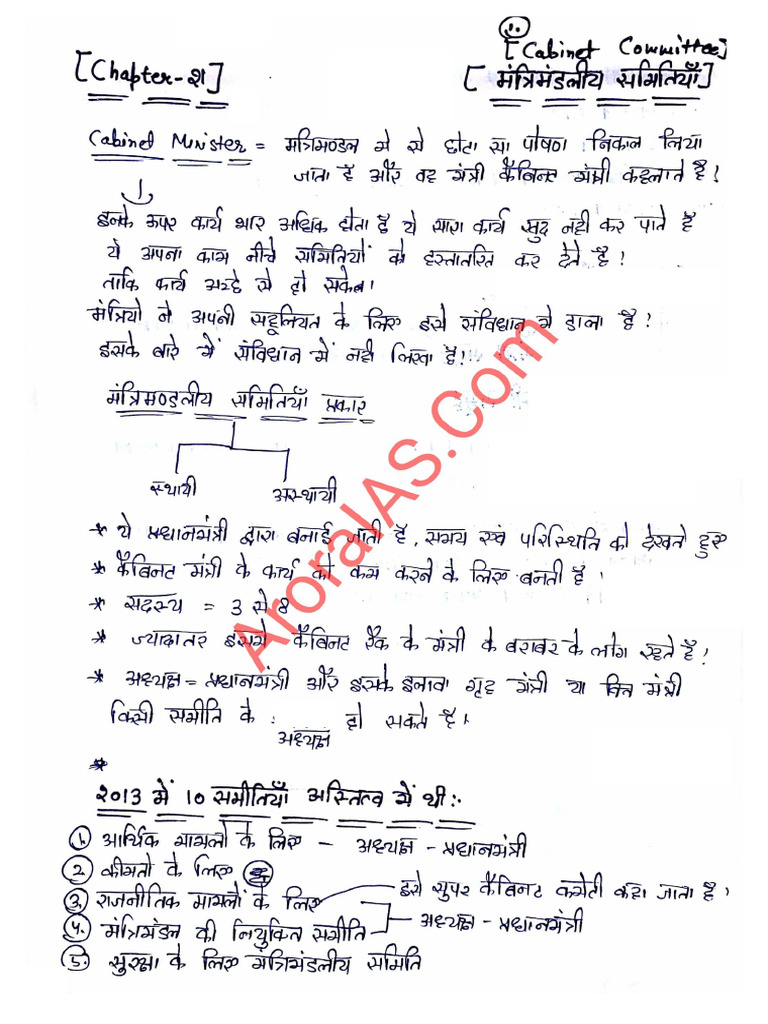 10.
[Cabinet Committee]
[Chapter-21]
[मंत्रिमंडलीय समितियाँ]
Cabinet Minister = मंत्रिमण्डल मे से छोटा सा पोषण निकल लिया
जाता है और वह मंत्री कैबिनट मंत्री कहलाते है!
इनके ऊपर कार्य भार अधिक होता है ये सारा कार्य खुद नही कर पाते है
ये अपना काम नीचे समितियों को हस्तातरित कर देते है!
ताकि कार्य अच्छे से हो सके।
मंत्रियो ने अपनी सहूलियत के लिए इसे संविधान मे डाला है!
इसके बारे में संविधान में नही लिखा है!
मंत्रिमण्डलीय समितियाँ प्रकार
स्थायी अस्थायी
* ये प्रधानमंत्री द्वारा बनाई जाती है, समय एवं परिस्थिति को देखते हुए
* कैबिनट मंत्री के कार्य को कम करने के लिए बनती है।
* सदस्य = 3 से 8
* ज्यादातर इसमे कैबिनट रैंक के मंत्री के बराबर के लोग रहते है!
* अध्यक्ष = प्रधानमंत्री और इसके इलावा गृह मंत्री या वित्त मंत्री
किसी समीति के अध्यक्ष हो सकते है।
*
2013 में 10 समीतियाँ अस्तित्व में थी:-
1. आर्थिक मामलो के लिए - अध्यक्ष - प्रधानमंत्री
2. कीमतो के लिए
3. राजनीतिक मामलों के लिए इसे सुपर कैबिनट कमेटी कहा जाता है।
4. मंत्रिमंडल की नियुक्ति समीति अध्यक्ष - प्रधानमंत्री
5. सुरक्षा के लिए मंत्रिमंडलीय समिति
AroraIAS.Com